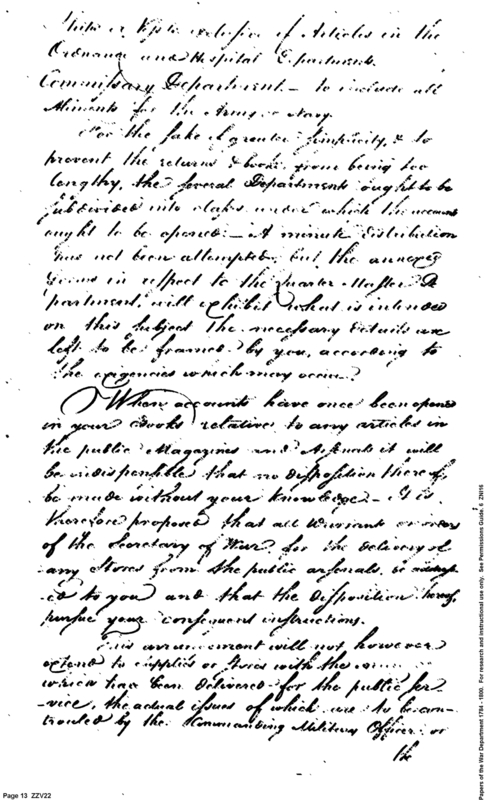 exclusive of Articles in the
Ordnance and Hospital Departments.
Commissary Department — to include all
Aliments for the Army or Navy.
For the sake of greater simplicity, & to
prevent the returns & books from being too
lengthy, the several Departments ought to be
subdivided into classes under which the accounts
ought to be opened — A minute distribution
has not been attempted, but the annexed
forms in respect to the Quarter Master De
partment, will exhibit what is intended
on this subject the necessary details are
left to be framed by you, according to
the exigencies which may occur.
When accounts have once been opened
in your Books relative to any articles in
the public Magazines and Arsenals it will
be indispensible that no disposition thereof
be made without your knowledge — It is
therefore proposed that all Warrants or orders
of the Secretary of War for the delivery of
any Stores from the public arsenals, be
ed to you and that the disposition thereof
pursue your consequent instructions.
This arrangement will not however
extend to supplies or Stores with the
which have been delivered for the public ser
-vice, the actual issues of which are to be con-
trouled by the Commanding Military Officer or
the
Page 13 ZZV22
Papers of the War Department 1784 - 1800. For research and instructional use only. See Permissions Guide. 6 ZNI16